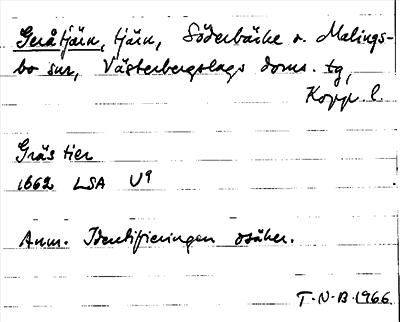 Geråtjärn, tjärn, Söderbärke o. Malings-
bo snr, Västerbergslags doms. tg,
Kopp. l.
Gräs tier
1662 LSA U9
Anm. Identifieringen osäker.
T.N.B. 1966